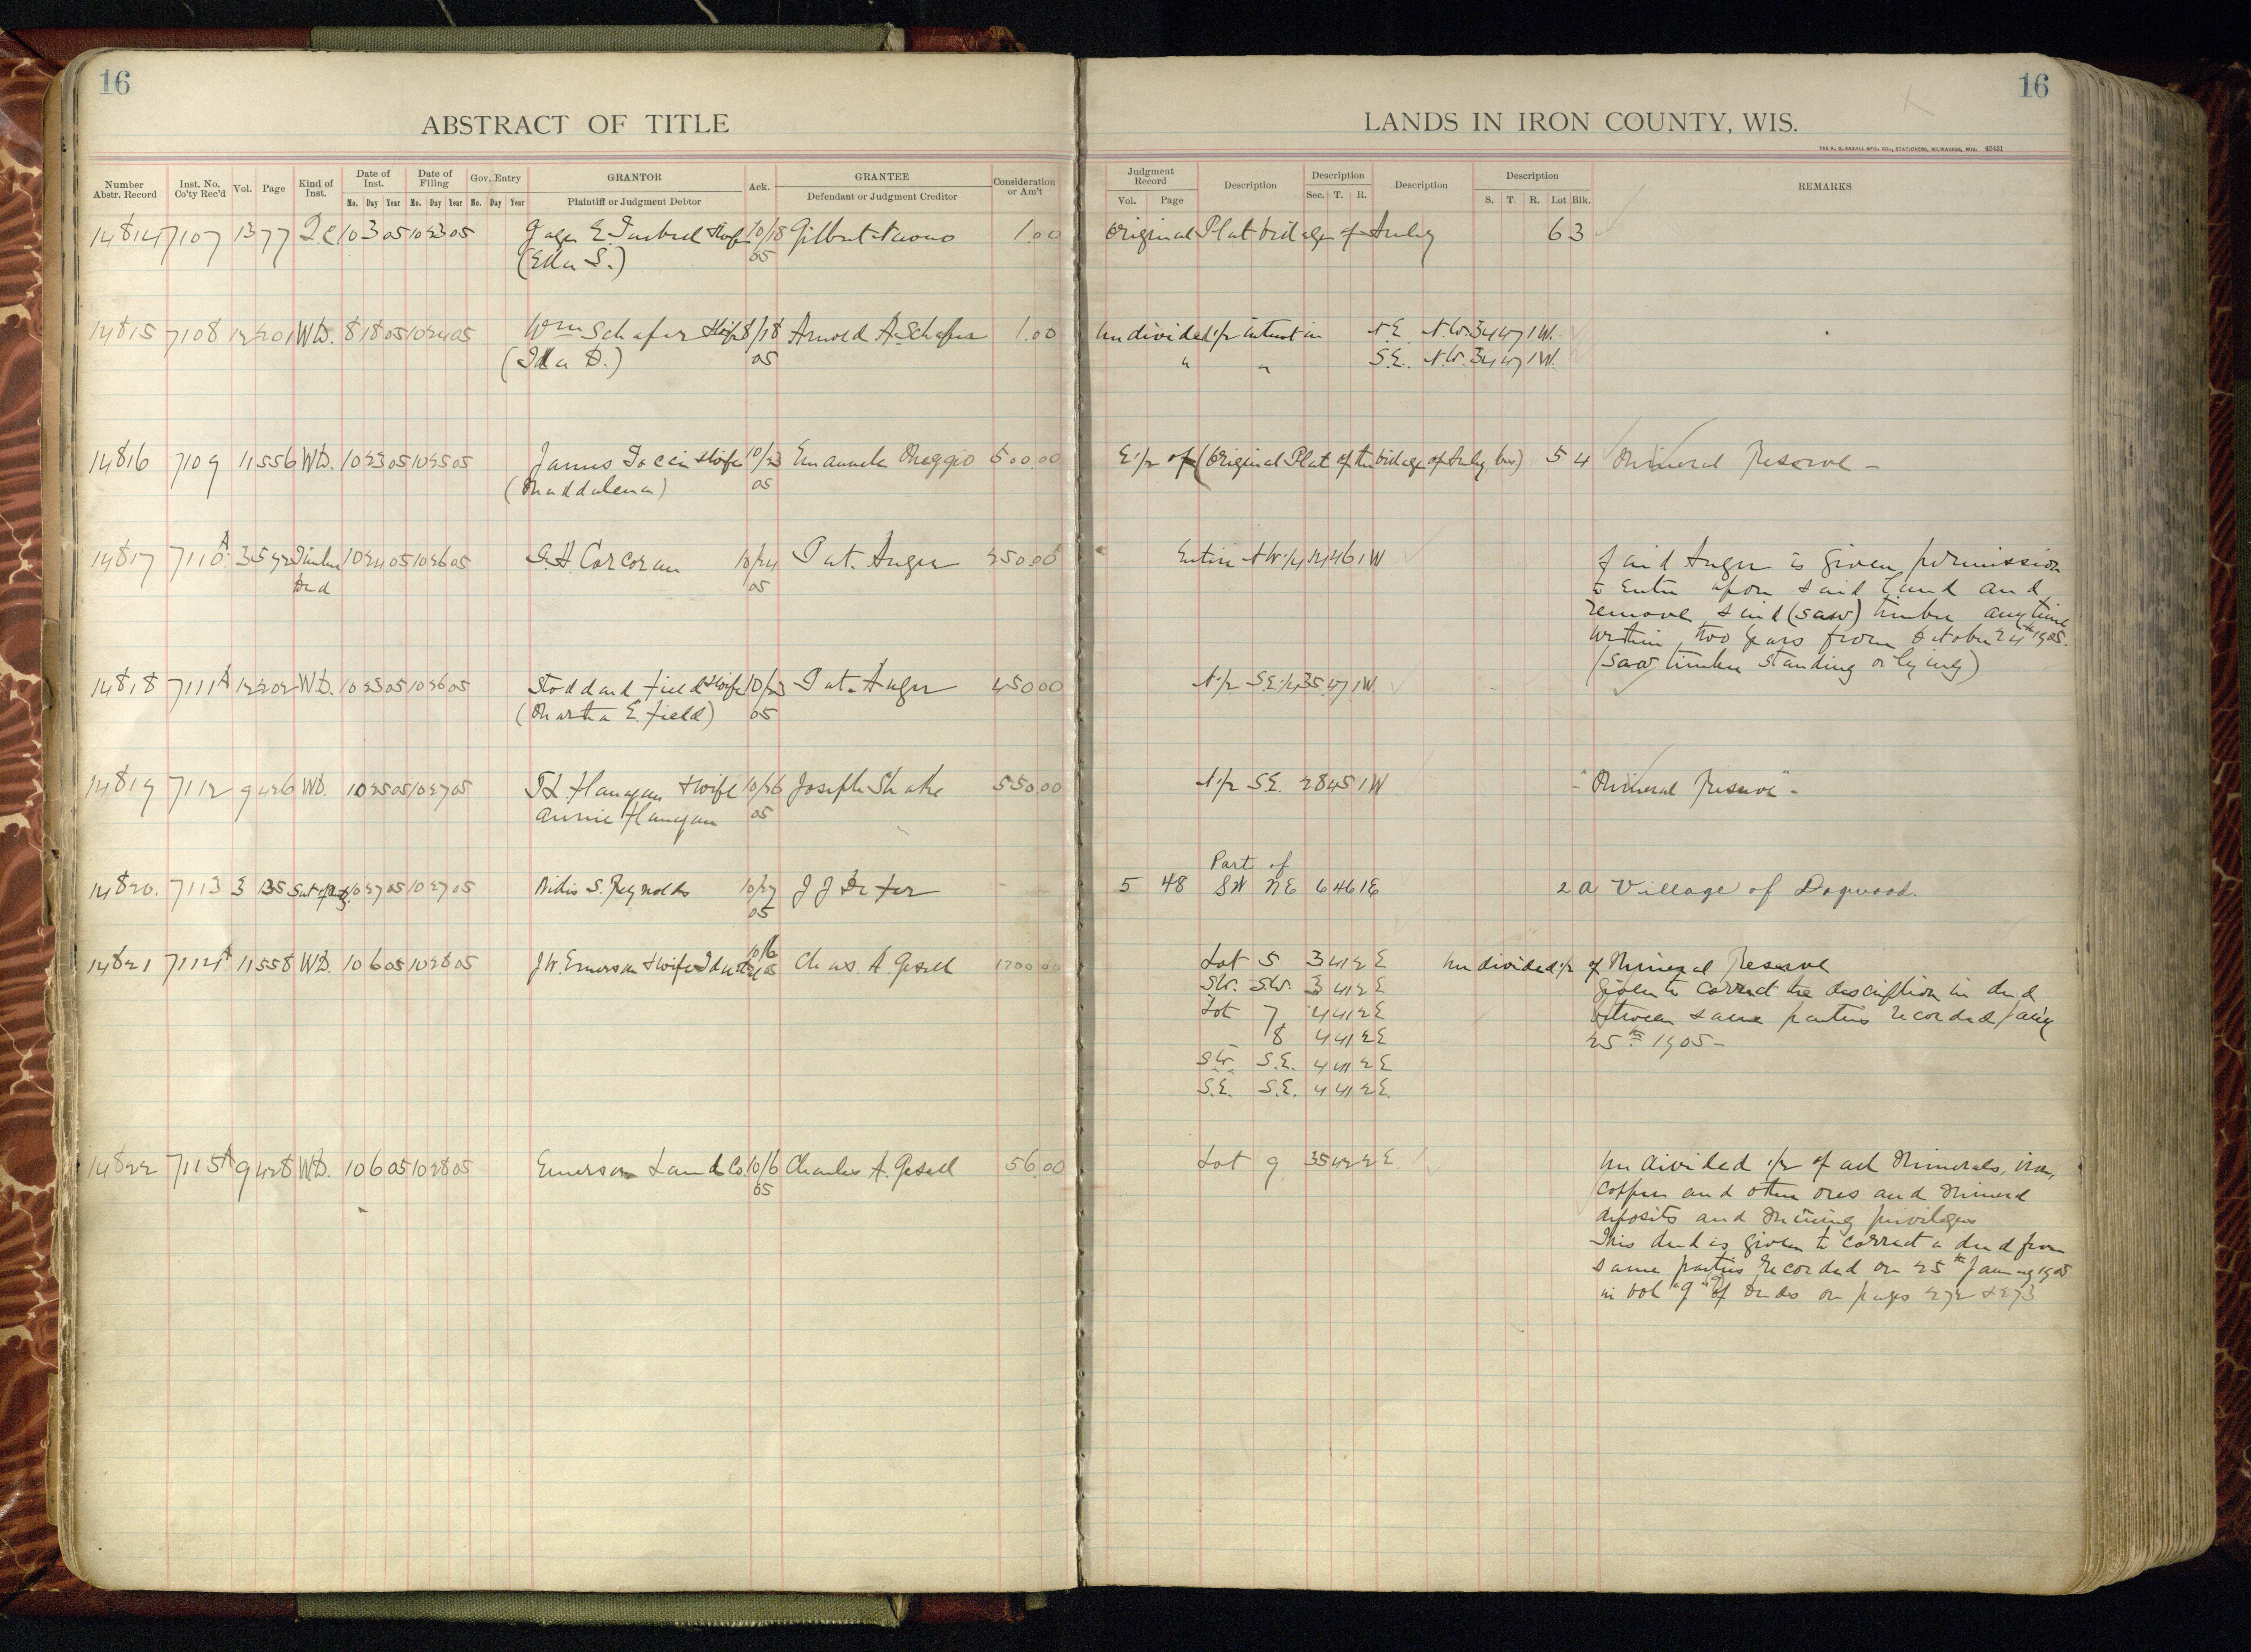 16
ABSTRACT OF TITLE
Number Abstr. Record Inst. No. Co'ty Rec'd Vol. Page Kind of Inst. Date of Inst. Date of Filing Gov. Entry GRANTOR Ack. GRANTEE Consideration or Am't
Mo. Day Year Mo. Day Year Mo. Day Year Plaintiff or Judgment Debtor Defendant or Judgment Creditor
14814 7107 13 77 Q.C. 10 3 05 10 23 05 & wife 10/18 Gilbert 1.00
(Ella S.) 05
14815 7108 12 201 W.D. 8 18 05 10 24 05 Wm Schafer & wife 8/18 Arnold A. Schafer 1.00
(Ida D.) 05
14816 7109 11 556 W.D. 10 23 05 10 25 05 James & wife 10/23 500.00
(Maddalena) 05
14817 7110 A 35 72 Timber 10 24 05 10 26 05 Corcoran 10/24 Pat. Auger 250.00
Deed 05
14818 7111 A 12 202 W.D. 10 23 05 10 26 05 Stoddard Field & wife 10/23 Pat. Auger 450.00
(Martha E. Field) 05
14819 7112 9 426 W.D. 10 25 05 10 27 05 Flanagan & wife 10/26 Joseph Shake 550.00
Annie Flanagan 05
14820. 7113 3 135 10 27 05 10 27 05 S. Reynolds 10/27 J J Defer —
05
14821 7114 A 11 558 W.D. 10 6 05 10 28 05 J.W. Emerson & wife 10/6 05 Chas. A. Gesell 1200.00
14822 7115 A 9 428 W.D. 10 6 05 10 28 05 Emerson Land Co. 10/6 Charles A. Gesell 56.00
05
16
LANDS IN IRON COUNTY, WIS.
THE H. G. RAZALL MFG. CO., STATIONERS, MILWAUKEE, WIS. 45431
Judgment Record Description Description Description Description REMARKS
Vol. Page Sec. T. R. S. T. R. Lot Blk.
Original Plat Village of Hurley 6 3
Undivided 1/2 interest in N.E. N.W. 34 47 1 W.
" " S.E. N.W. 34 47 1 W.
E 1/2 of (Original Plat of the village of Hurley, Wis) 5 4 Mineral Reserve —
Entire N W 1/4 14 46 1 W Said Auger is given permission
to enter upon said land and
remove said (saw) timber anytime
within two years from October 24th 1905.
(saw timber standing or lying)
N 1/2 S.E. 1/4 35 47 1 W.
N 1/2 S.E. 28 45 1 W "Mineral Reserve" –
Part of
5 48 SW NE 6 46 1 E 2 A Village of Dogwood.
Lot 5 3 41 2 E Undivided 1/2 of Mineral Reserve
SW. S.W. 3 41 2 E Given to correct the description in deed
Lot 7 4 41 2 E between same parties recorded Jany
8 4 41 2 E 25th 1905 –
SW. S.E. 4 41 2 E
S.E. S.E. 4 41 2 E.
Lot 9 35 42 2 E. Undivided 1/2 of all Minerals, iron,
copper and other ores and mineral
deposits and mining privileges
This deed is given to correct a deed from
same parties recorded on 25th January 1905
in vol "9" of Deeds on pages 272 & 273